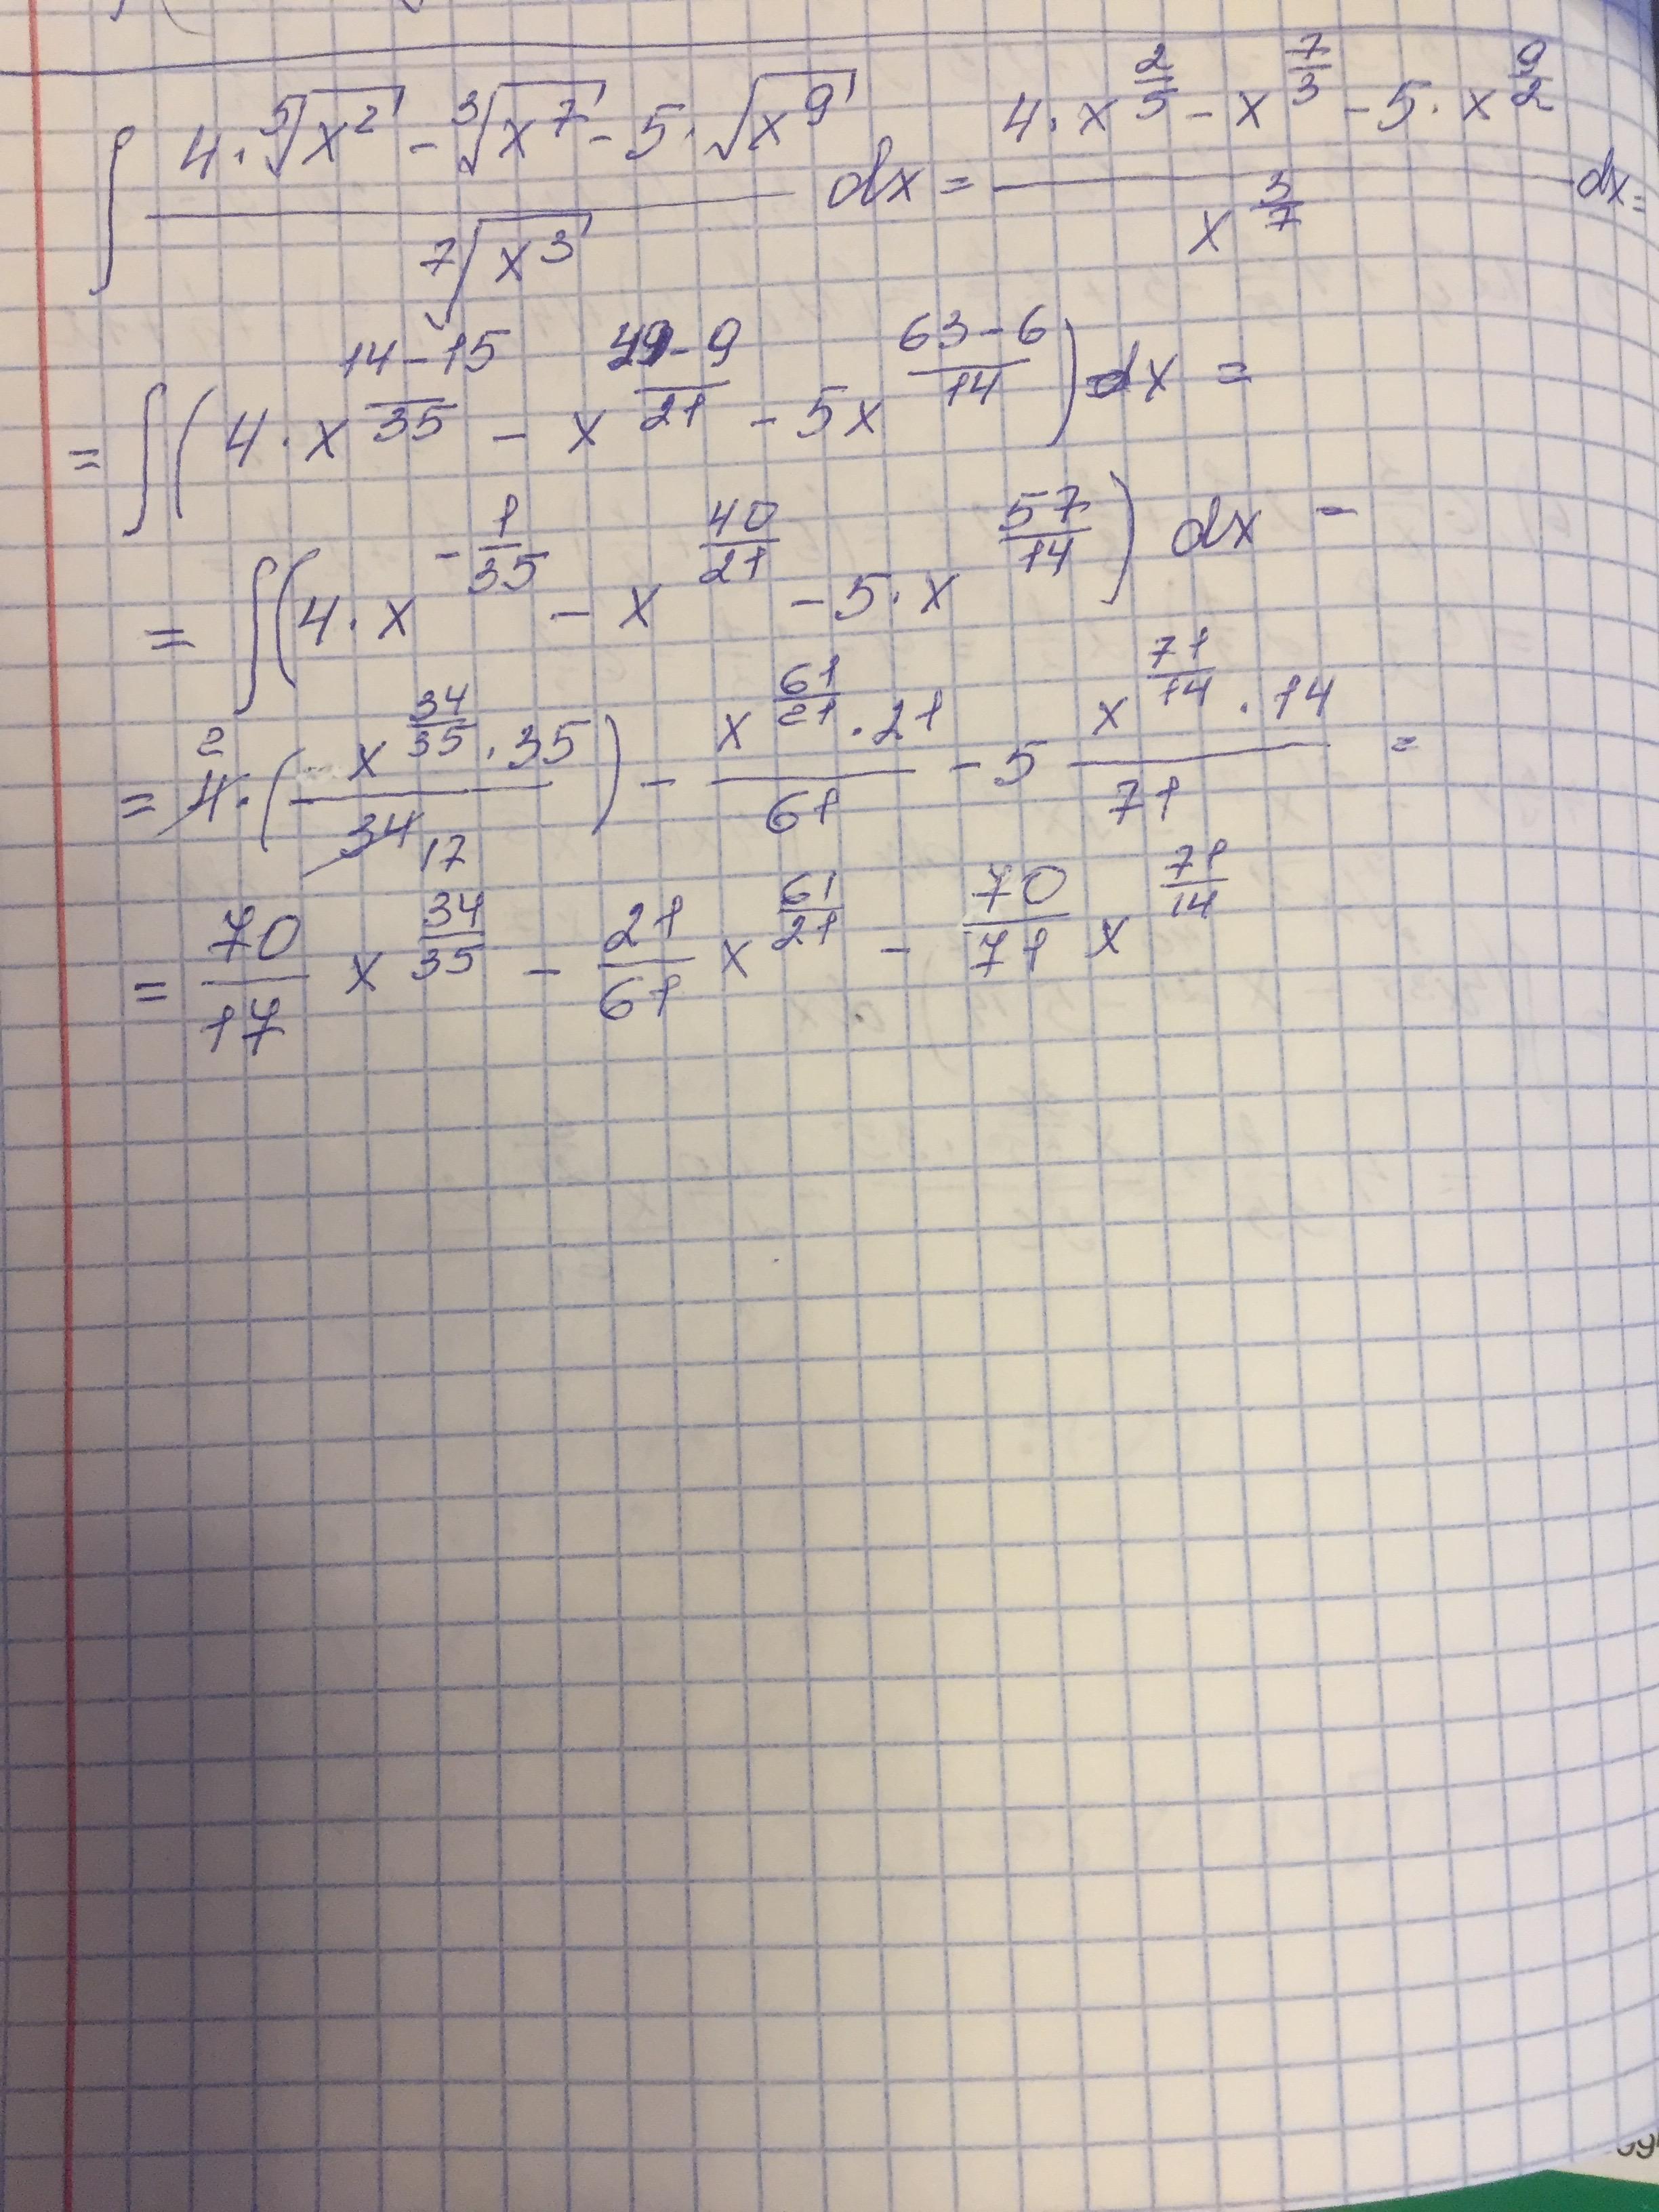 ∫ (4·⁵√(x²) - ³√(x⁷) - 5·√(x⁹)) / ⁷√(x³) dx = (4·x^(2/5) - x^(7/3) - 5·x^(9/2)) / x^(3/7) dx =
= ∫(4·x^((14-15)/35) - x^((49-9)/21) - 5x^((63-6)/14)) dx =
= ∫(4·x^(-1/35) - x^(40/21) - 5·x^(57/14)) dx -
= 4·(x^(34/35)·35 / 34) - x^(61/21)·21 / 61 - 5 x^(71/14)·14 / 71 =
2 17
= 70/17 x^(34/35) - 21/61 x^(61/21) - 70/71 x^(71/14)